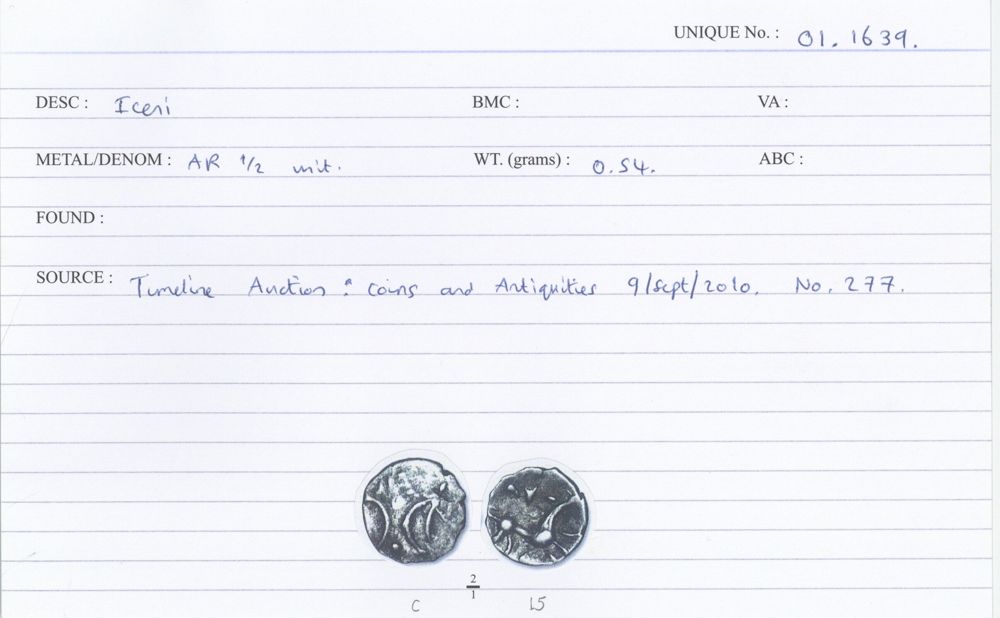 UNIQUE No. : 01. 1639.
DESC : Iceni BMC : VA :
METAL/DENOM : AR 1/2 unit. WT. (grams) : 0.54. ABC :
FOUND :
SOURCE : Timeline Auction : Coins and Antiquities 9/Sept/2010. No. 277.
2
1
C L5